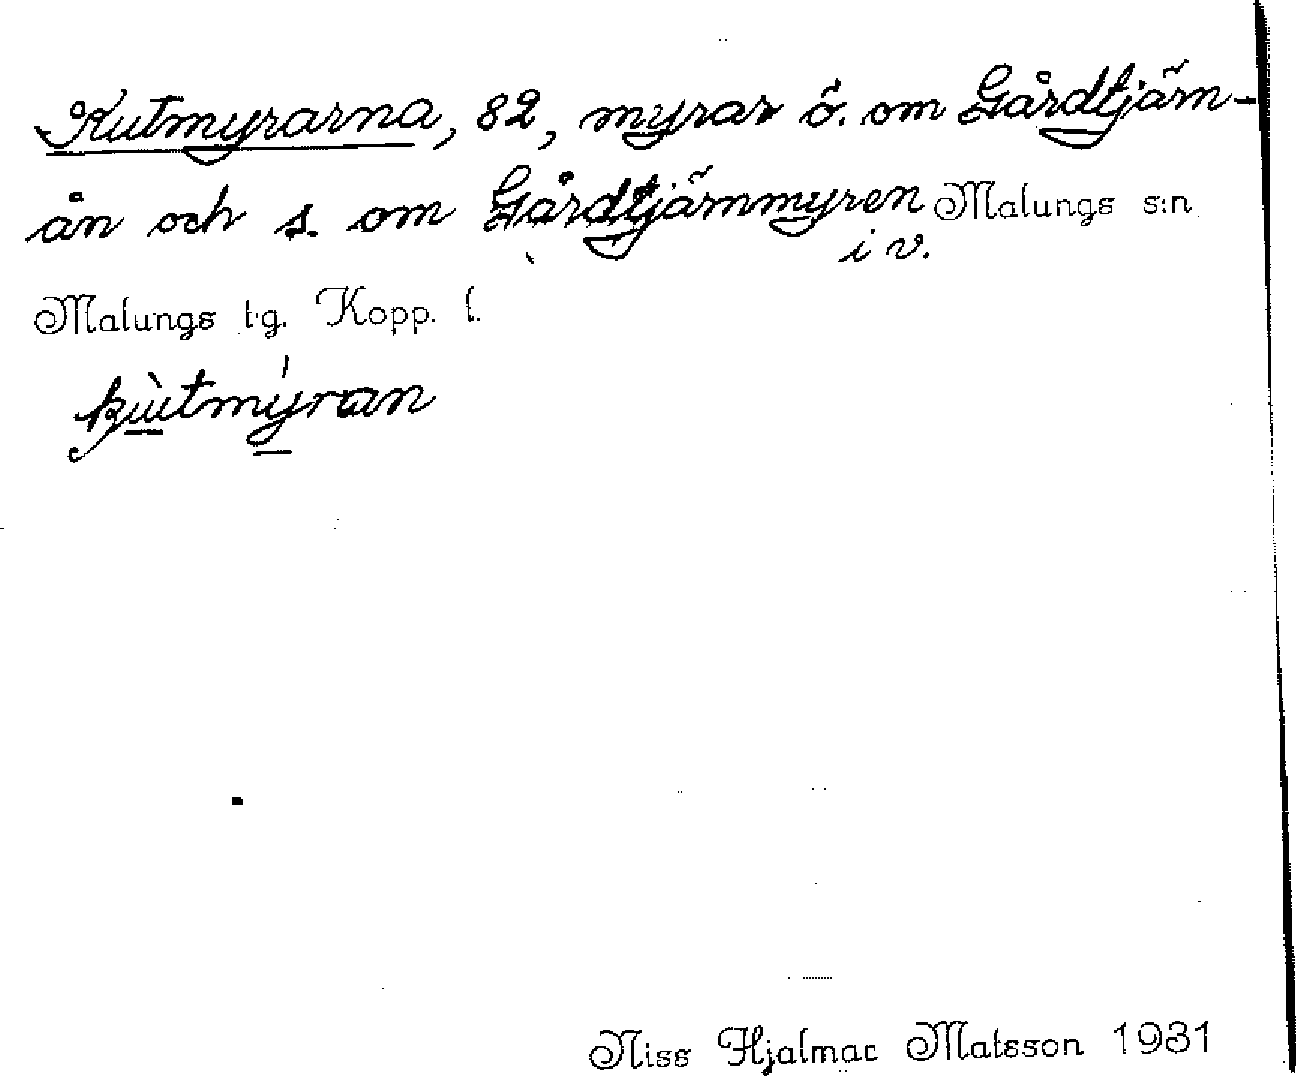 Kutmyrarna, 82, myrar ö. om Gårdtjärn-
ån och s. om Gårdtjärnmyren Malungs s:n
i v.
Malungs t·g. Kopp. l.
kùtmýran
Niss Hjalmar Matsson 1931